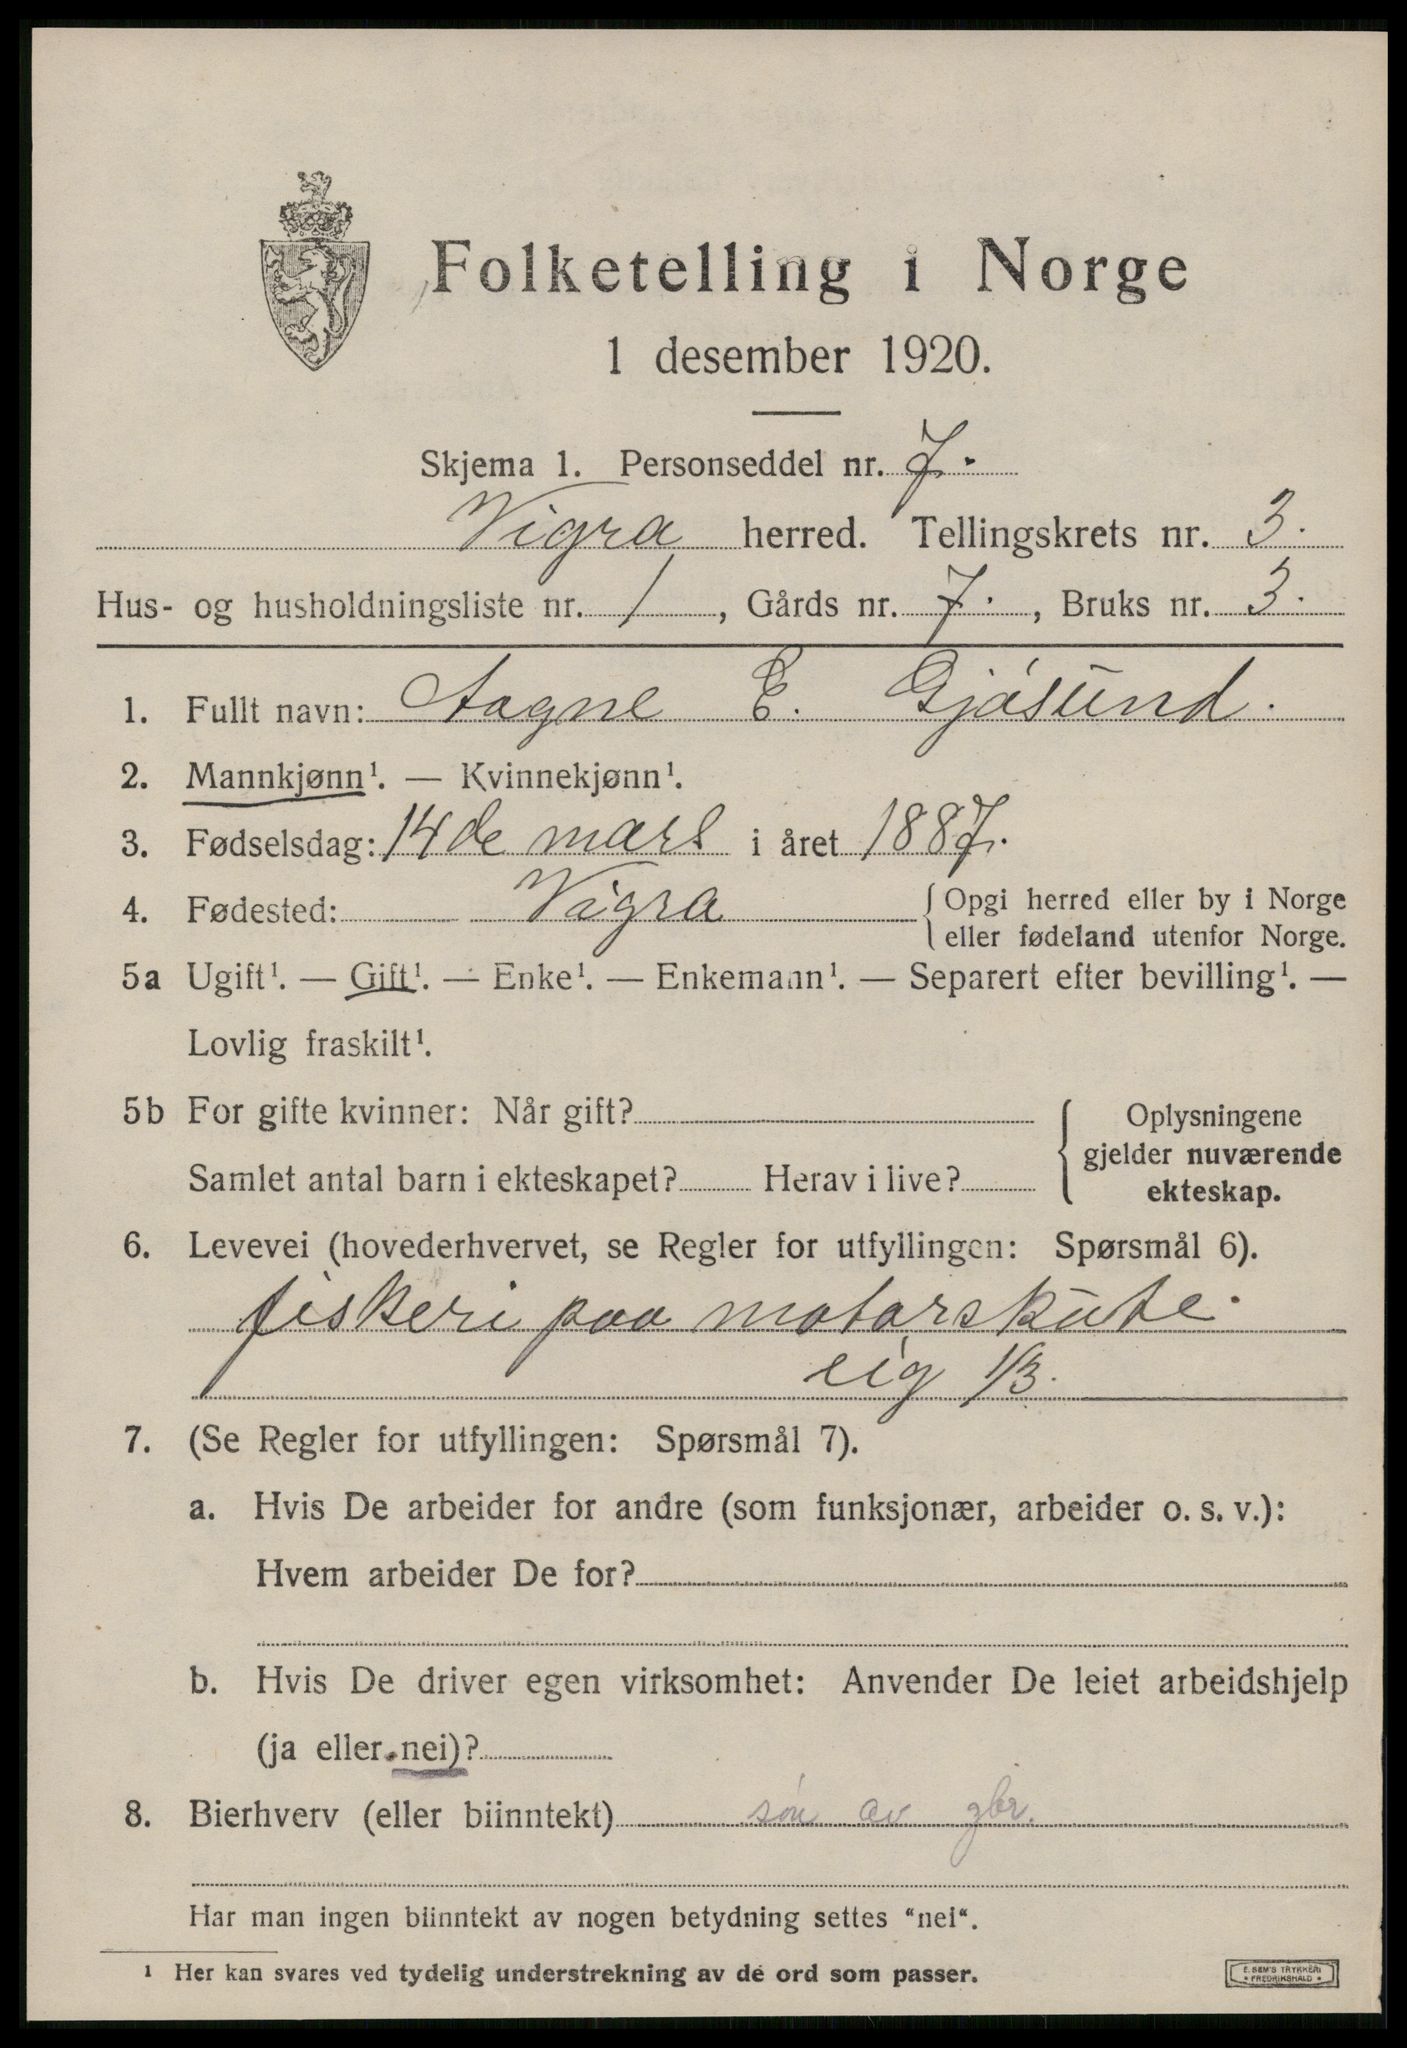 Folketelling i Norge
1 desember 1920.
Skjema 1. Personseddel nr. 7.
Vigra herred. Tellingskrets nr. 3.
Hus- og husholdningsliste nr. 1, Gårds nr. 7., Bruks nr. 3.
1. Fullt navn: Aagne E. Gjøsund.
2. Mannkjønn¹. — Kvinnekjønn¹.
3. Fødselsdag: 14de mars i året 1887.
4. Fødested: Vigra {Opgi herred eller by i Norge
eller fødeland utenfor Norge.
5a Ugift¹. — Gift¹. — Enke¹. — Enkemann¹. — Separert efter bevilling¹. —
Lovlig fraskilt¹.
5b For gifte kvinner: Når gift?
Samlet antal barn i ekteskapet? Herav i live?
Oplysningene
gjelder nuværende
ekteskap.
6. Levevei (hovederhvervet, se Regler for utfyllingen: Spørsmål 6).
fiskeri paa motorskute.
eig 1/3.
7. (Se Regler for utfyllingen: Spørsmål 7).
a. Hvis De arbeider for andre (som funksjonær, arbeider o. s. v.):
Hvem arbeider De for?
b. Hvis De driver egen virksomhet: Anvender De leiet arbeidshjelp
(ja eller nei)?
8. Bierhverv (eller biinntekt) søn av gbr.
Har man ingen biinntekt av nogen betydning settes “nei“.
¹ Her kan svares ved tydelig understrekning av de ord som passer.
E. SEM'S TRYKKERI
• FREDRIKSHALD •